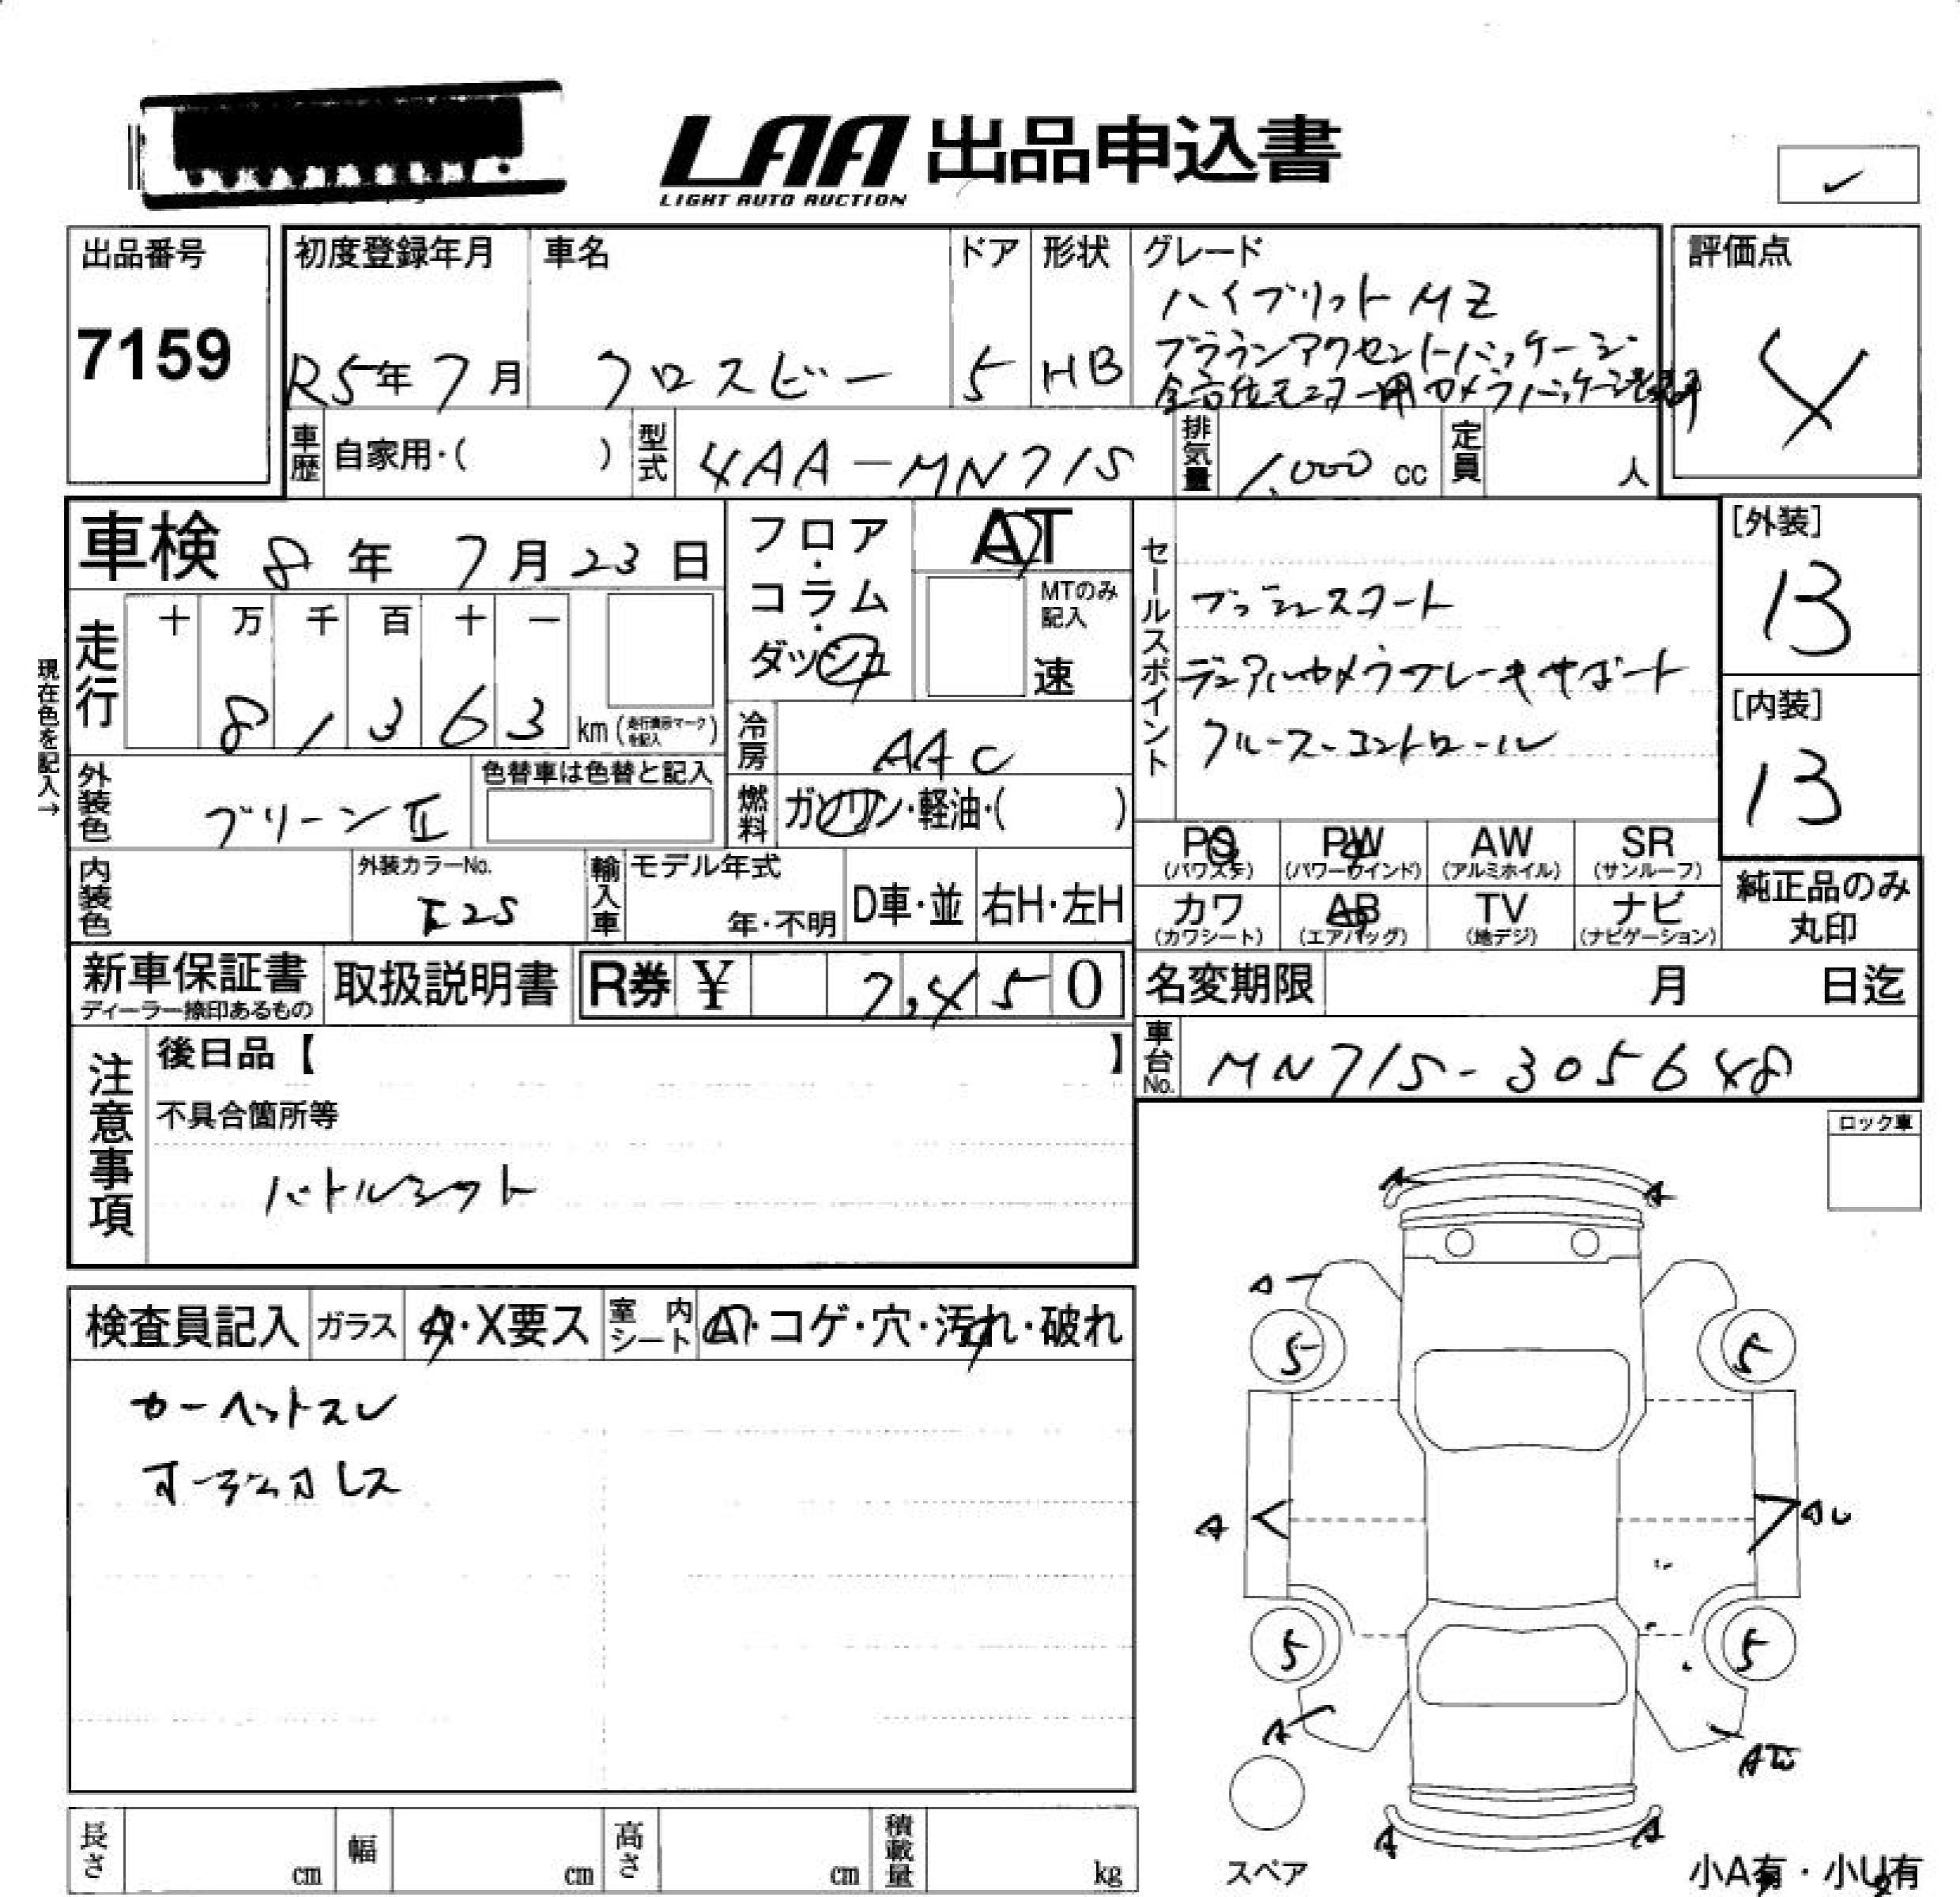 LAA 出品申込書
LIGHT AUTO AUCTION
出品番号
7159
初度登録年月
R5年7月
車名
クロスビー
ドア
5
形状
HB
グレード
ハイブリットMZ
ブラウンアクセントパッケージ
全方位モニター用カメラパッケージ
評価点
4
車歴 自家用・( )
型式 4AA-MN71S
排気量 1,000 cc
定員 人
車検 8年 7月 23日
フロア・コラム・ダッシュ
AT
MTのみ記入
速
走行
十 万 千 百 十 一
8 1 3 6 3 km (走行表示マークを記入)
現在色を記入→
冷房 AAC
外装色 グリーンⅡ
色替車は色替と記入
燃料 ガソリン・軽油・( )
内装色
外装カラーNo.
輸入車
モデル年式
年・不明
D車・並
右H・左H
セールスポイント
プッシュスタート
デュアルカメラブレーキサポート
クルーズコントロール
[外装]
13
[内装]
13
PS (パワステ)
PW (パワーウインド)
AW (アルミホイル)
SR (サンルーフ)
カワ (カワシート)
AB (エアバッグ)
TV (地デジ)
ナビ (ナビゲーション)
純正品のみ丸印
新車保証書
ディーラー捺印あるもの
取扱説明書
R券 ¥ 7,450
名変期限 月 日迄
車台No. MN71S-305648
注意事項
後日品【 】
不具合箇所等
パドルシフト
ロック車
検査員記入
ガラス A・X要ス
室内シート A・コゲ・穴・汚れ・破れ
カーペットスレ
オーディオレス
A A
A
5 5
A
5 5
A
A A
スペア
小A有・小U有
長さ cm
幅 cm
高さ cm
積載量 kg